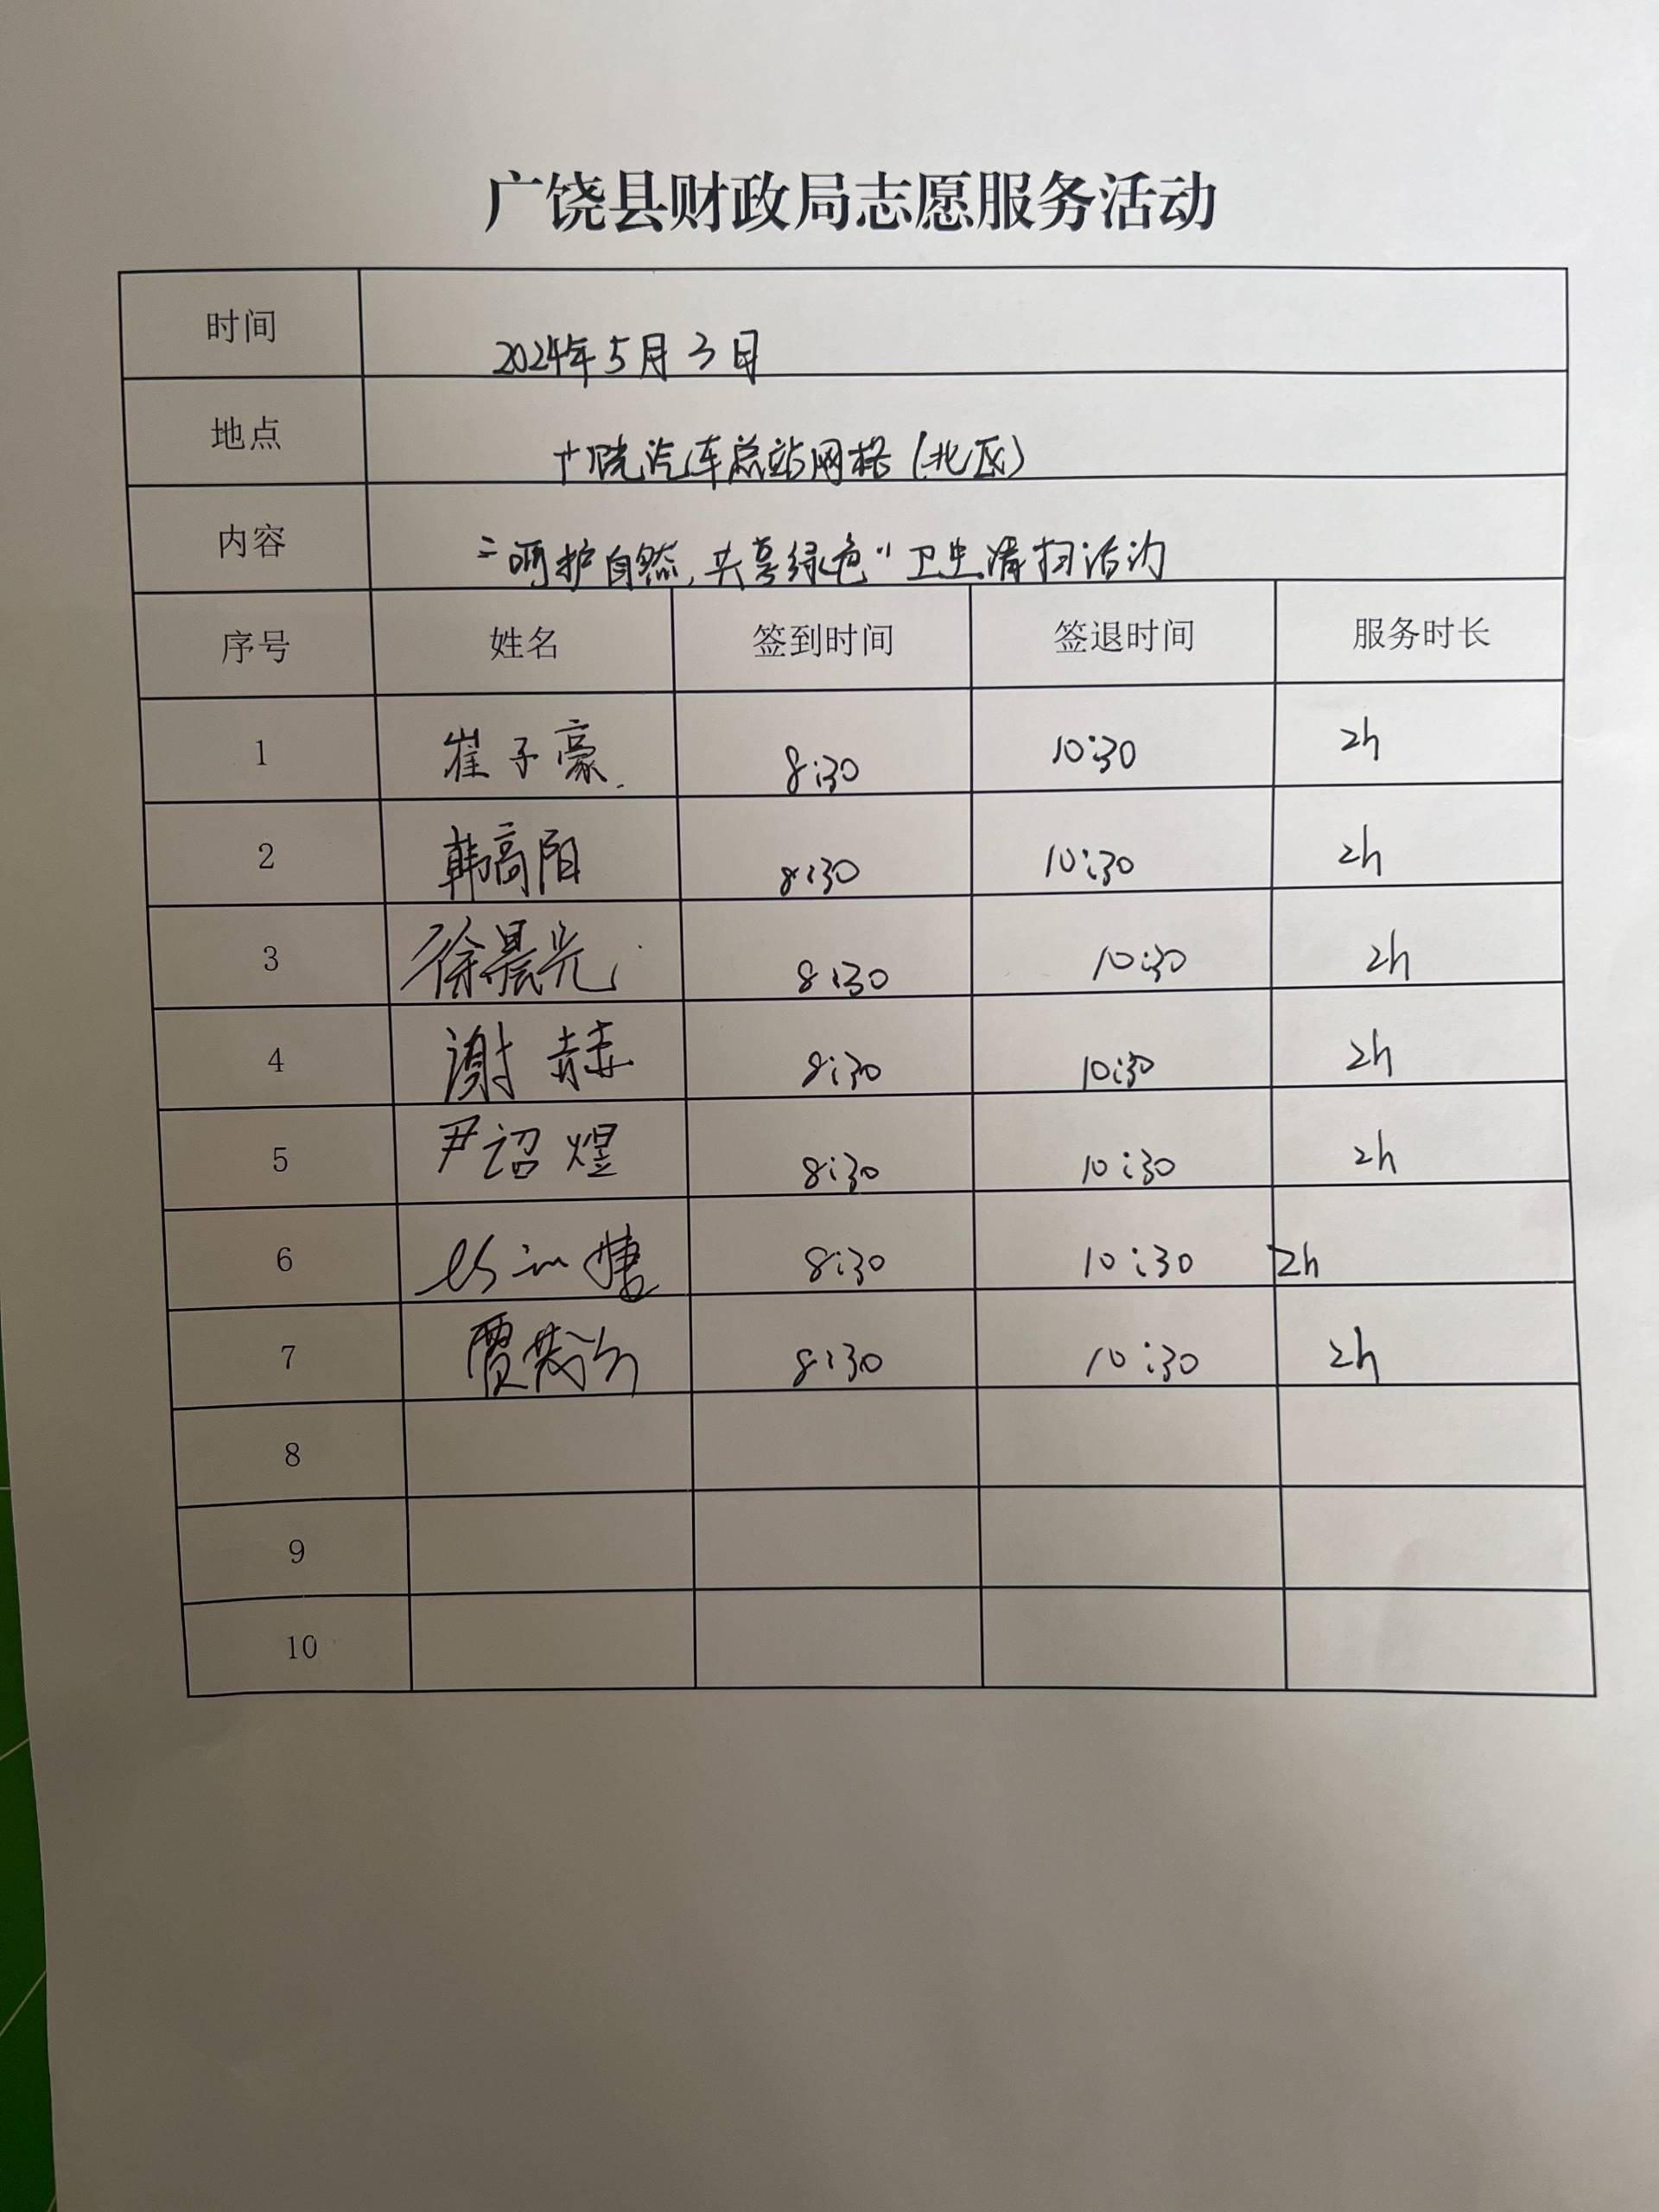 广饶县财政局志愿服务活动
时间 2024年5月3日
地点 广饶汽车总站网格(北区)
内容 "呵护自然,共享绿色"卫生清扫活动
序号 姓名 签到时间 签退时间 服务时长
1 崔子豪 8:30 10:30 2h
2 韩高阳 8:30 10:30 2h
3 徐晨光 8:30 10:30 2h
4 谢赫 8:30 10:30 2h
5 尹诏煜 8:30 10:30 2h
6 8:30 10:30 2h
7 贾 8:30 10:30 2h
8
9
10